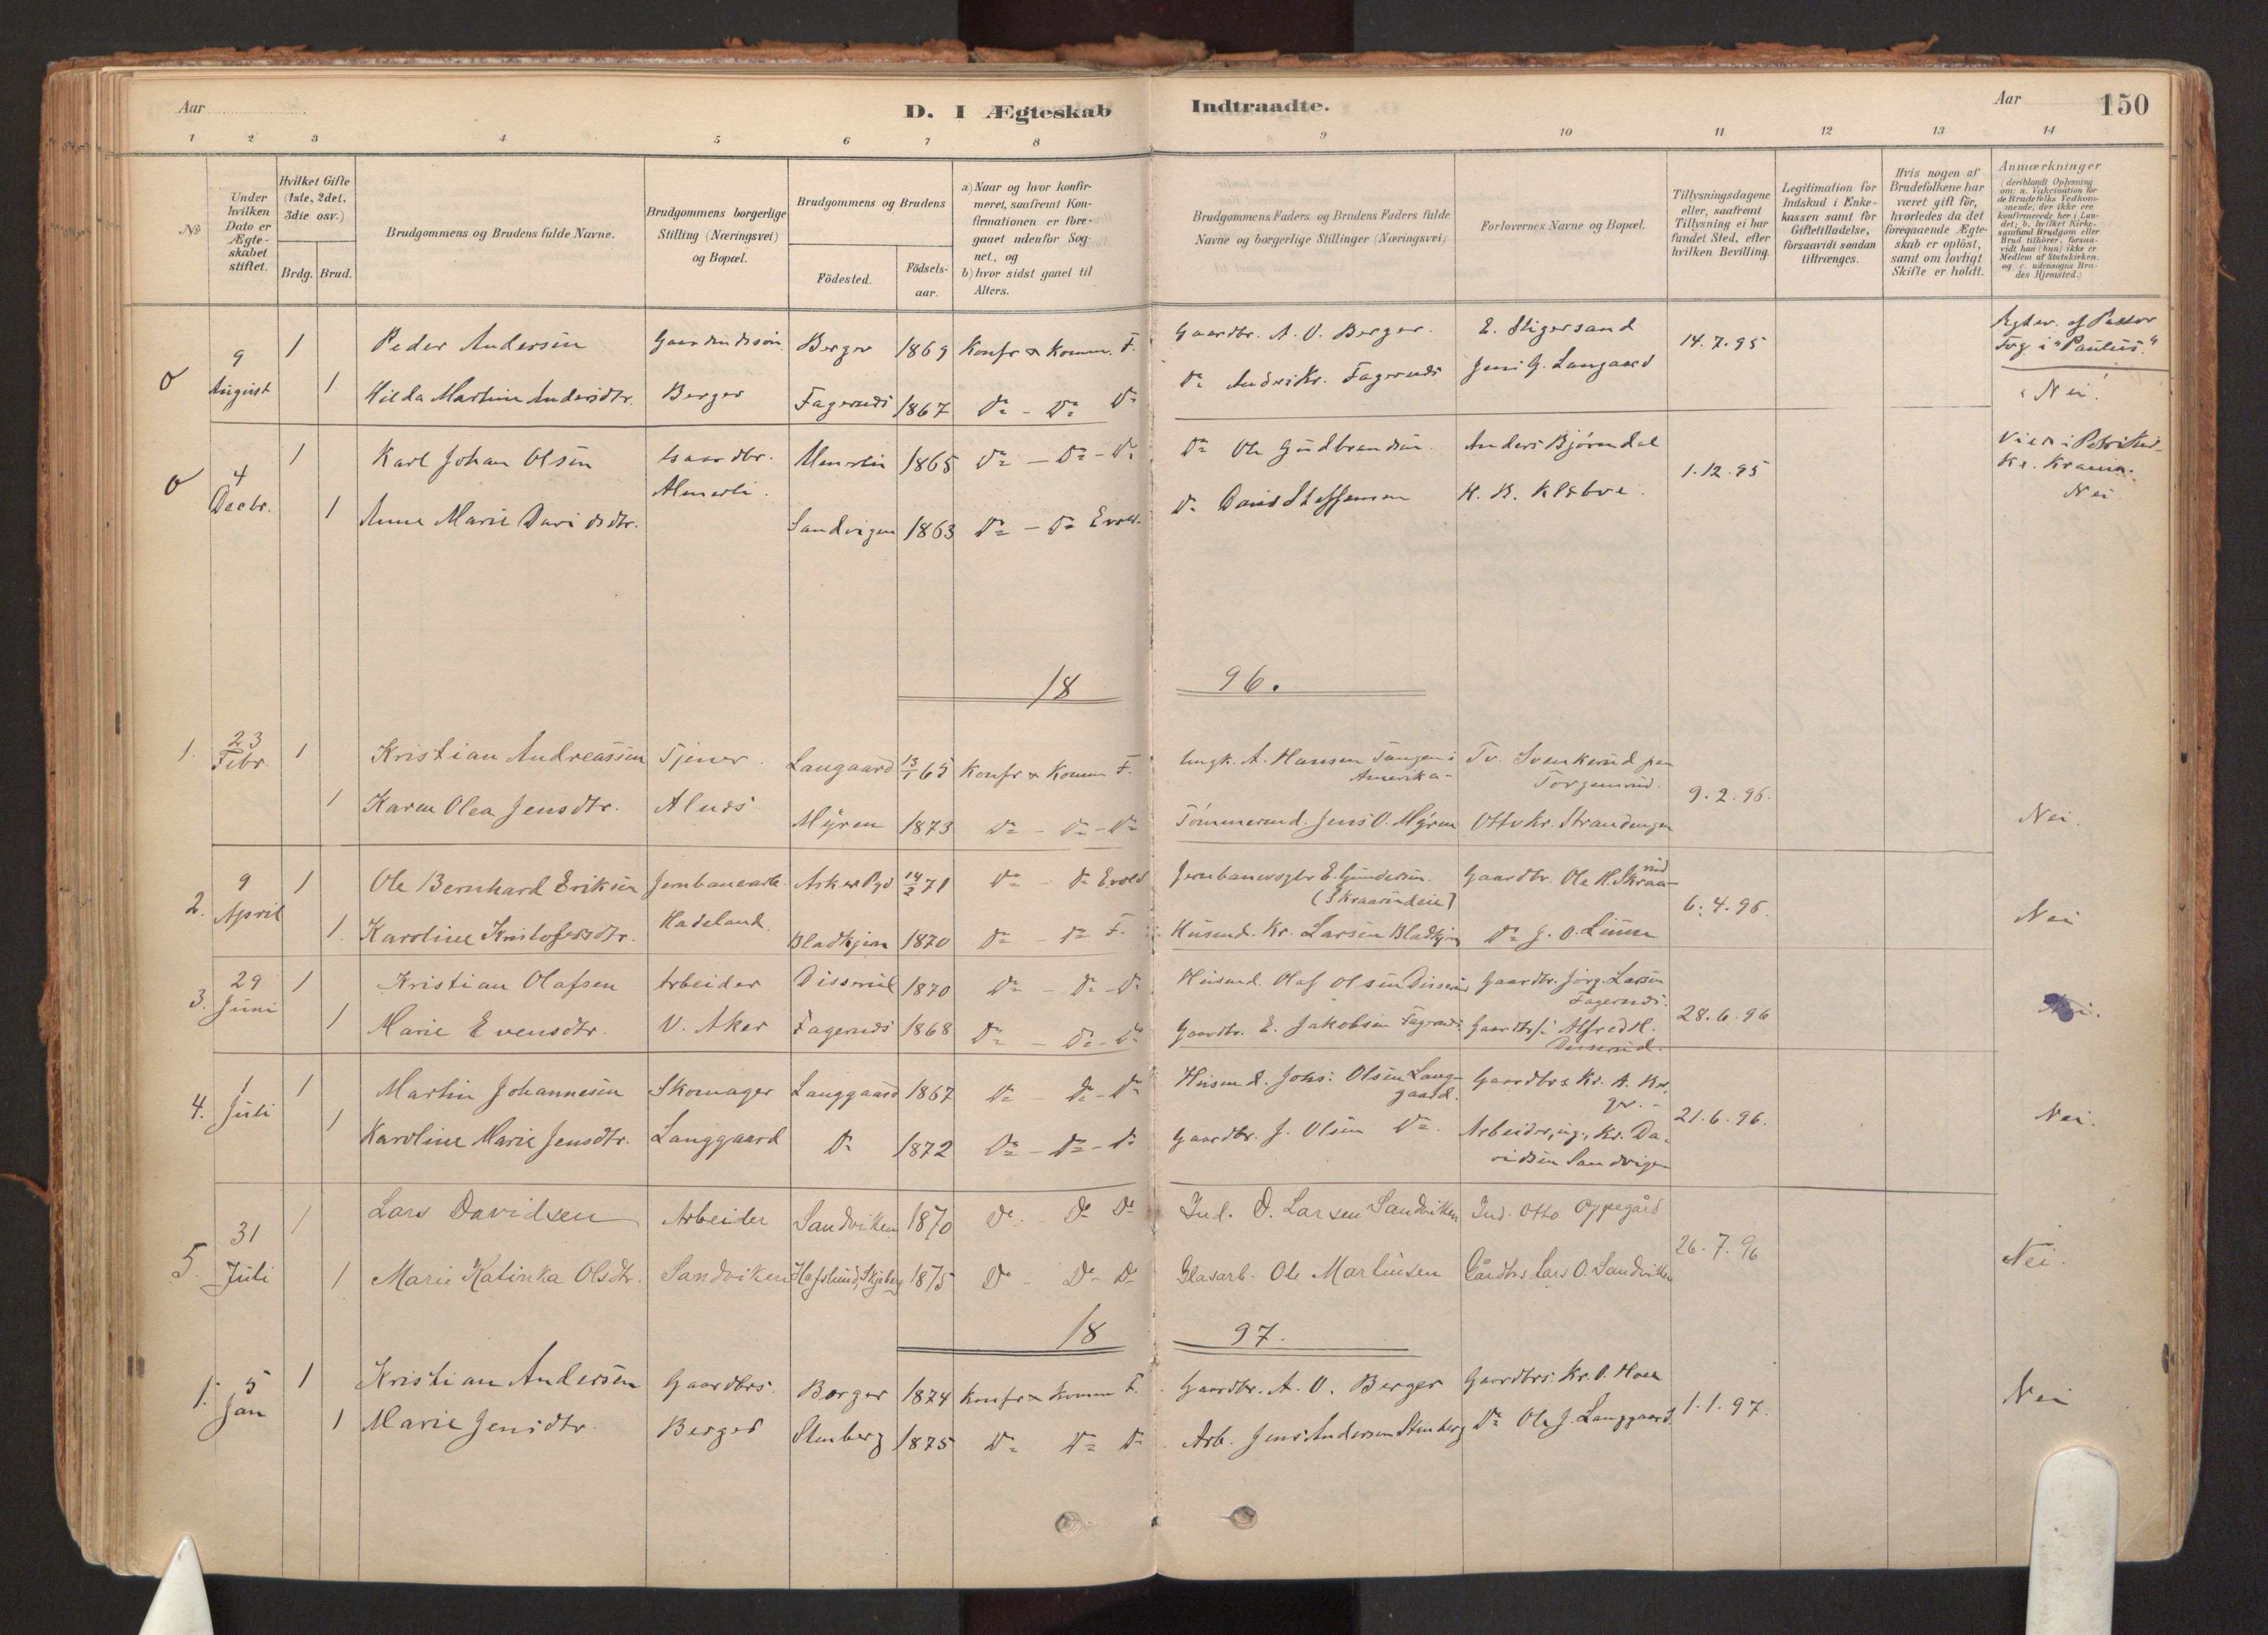 Aar
D. I Ægteskab Indtraadte.
Aar
150
1 2 3 4 5 6 7 8 9 10 11 12 13 14
No
Under hvilken Dato er Ægteskabet stiftet.
Hvilket Gifte (1ste, 2det, 3die osv.)
Brdg. Brud.
Brudgommens og Brudens fulde Navne.
Brudgommens borgerlige Stilling (Næringsvei) og Bopæl.
Brudgommens og Brudens
Födested.
Födsels-aar.
a) Naar og hvor konfirmeret, saafremt Konfirmationen er foregaaet udenfor Sognet, og
b) hvor sidst gaaet til Alters.
Brudgommens Faders og Brudens Faders fulde Navne og borgerlige Stillinger (Næringsvei)
Forlovernes Navne og Bopæl.
Tillysningsdagene eller, saafremt Tillysning ei har fundet Sted, efter hvilken Bevilling.
Legitimation for Indskud i Enkekassen samt for Giftetilladelse, forsaavidt saadan tiltrænges.
Hvis nogen af Brudefolkene har været gift för, hvorledes da det foregaaende Ægteskab er oplöst, samt om lovligt Skifte er holdt.
Anmærkninger (deriblandt Oplysning om: a. Vakcination for de Brudefolks Vedkommende, der ikke ere konfirmerede her i Landet; b. hvilket Kirkesamfund Brudgom eller Brud tilhörer, forsaavidt han (hun) ikke er Medlem af Statskirken, og c. udensogns Brudes Hjemsted.)
0 9 August 1 Peder Andersen Gaardmdssön Berger 1869 Konfr & Komm. F. Gaardbr. A. O. Berger. E. Stigersand 14.7.95 af Pastor i "Paulus"
1 Hilda Martine Andersdtr. Berger Fagernæs 1867 Do - Do Do Do Andr. Kr. Fagernæs Jens G. Langaard Nei.
0 4 Decbr. 1 Karl Johan Olsen Gaardbr. Almerli 1865 Do - Do - Do Do Ole Gudbrandsen. Anders Bjørndal 1.12.95 Viet i Petri Kirke
Almerli. Kr.
1 Anne Marie Davidsdtr. Sandvigen 1863 Do - Do Evold. Do David Steffensen H. B. Klæboe. Nei
18 96.
1. 23 Febr. 1 Kristian Andreassen Tjener. Langaard 13/1 65 Konfr & Komm F. Ungk. A. Hansen Tangen i Amerika - Tv. Svenkerud pen Torgenrud. 9.2.96.
1 Karen Olea Jensdtr. Alnæs Myren 1873 Do - Do - Do Tömmermd. Jens O. Myren Otto Kr. Strandengen Nei.
2. 9 April 1 Ole Bernhard Eriksen Jernbanearb. Asker Pgd 14/2 71 Do - Do Evold Jernbanevogtr E. Gundersen. (Skraarudeie) Gaardbr. Ole H. Skraarud 6.4.96. Nei
1. Karoline Kristofersdtr. Hadeland. Bladkjern 1870 Do - Do F. Husmd. Kr. Larsen Bladkjern Do J. O. Linna
3. 29 Juni 1 Kristian Olafsen Arbeider Disserud 1870 Do - Do - Do Husmd. Olaf Olsen Disserud Gaardbr. Jörg. Larsen Fagernæs. 28.6.96 Nei.
1 Marie Evensdtr. V. Aker Fagernæs 1868 Do - Do - Do Gaardbr. E. Jakobsen Fagernæs Gaardbrs. Alfred H. Disserud.
4. 1 Juli 1 Martin Johannesen Skomager Langgaard 1867 Do - Do - Do Husmd. Johs. Olsen Langgaard. Gaardbrs Kr. A. Berger. - 21.6.96. Nei.
1 Karoline Marie Jensdtr. Langgaard Do 1872 Do - Do - Do Gaardbr. J. Olsen Do. Arbeider, ug., Kr. Davidsen Sandvigen
5. 31 Juli 1 Lars Davidsen Arbeider Sandviken 1870 Do. Do Do Ind. D. Larsen Sandviken Ind. Otto Oppegård 26.7.96 Nei.
1 Marie Katinka Olsdtr. Sandviken Hafslund, Skjeberg 1875 Do - Do - Do Glasarb. Ole Martinsen Gårdbrs Lars O. Sandviken
18 97.
1. 5 Jan 1 Kristian Andersen Gaardbrs. Berger 1874 Konfr & Komm F. Gaardbr. A. O. Berger Gaardbrs. Kr. O. Hoen 1.1.97. Nei
1 Marie Jensdtr. Berger Stenberg 1875 Do Do Do Arb. Jens Andersen Stenberg Do Ole J. Langgaard.